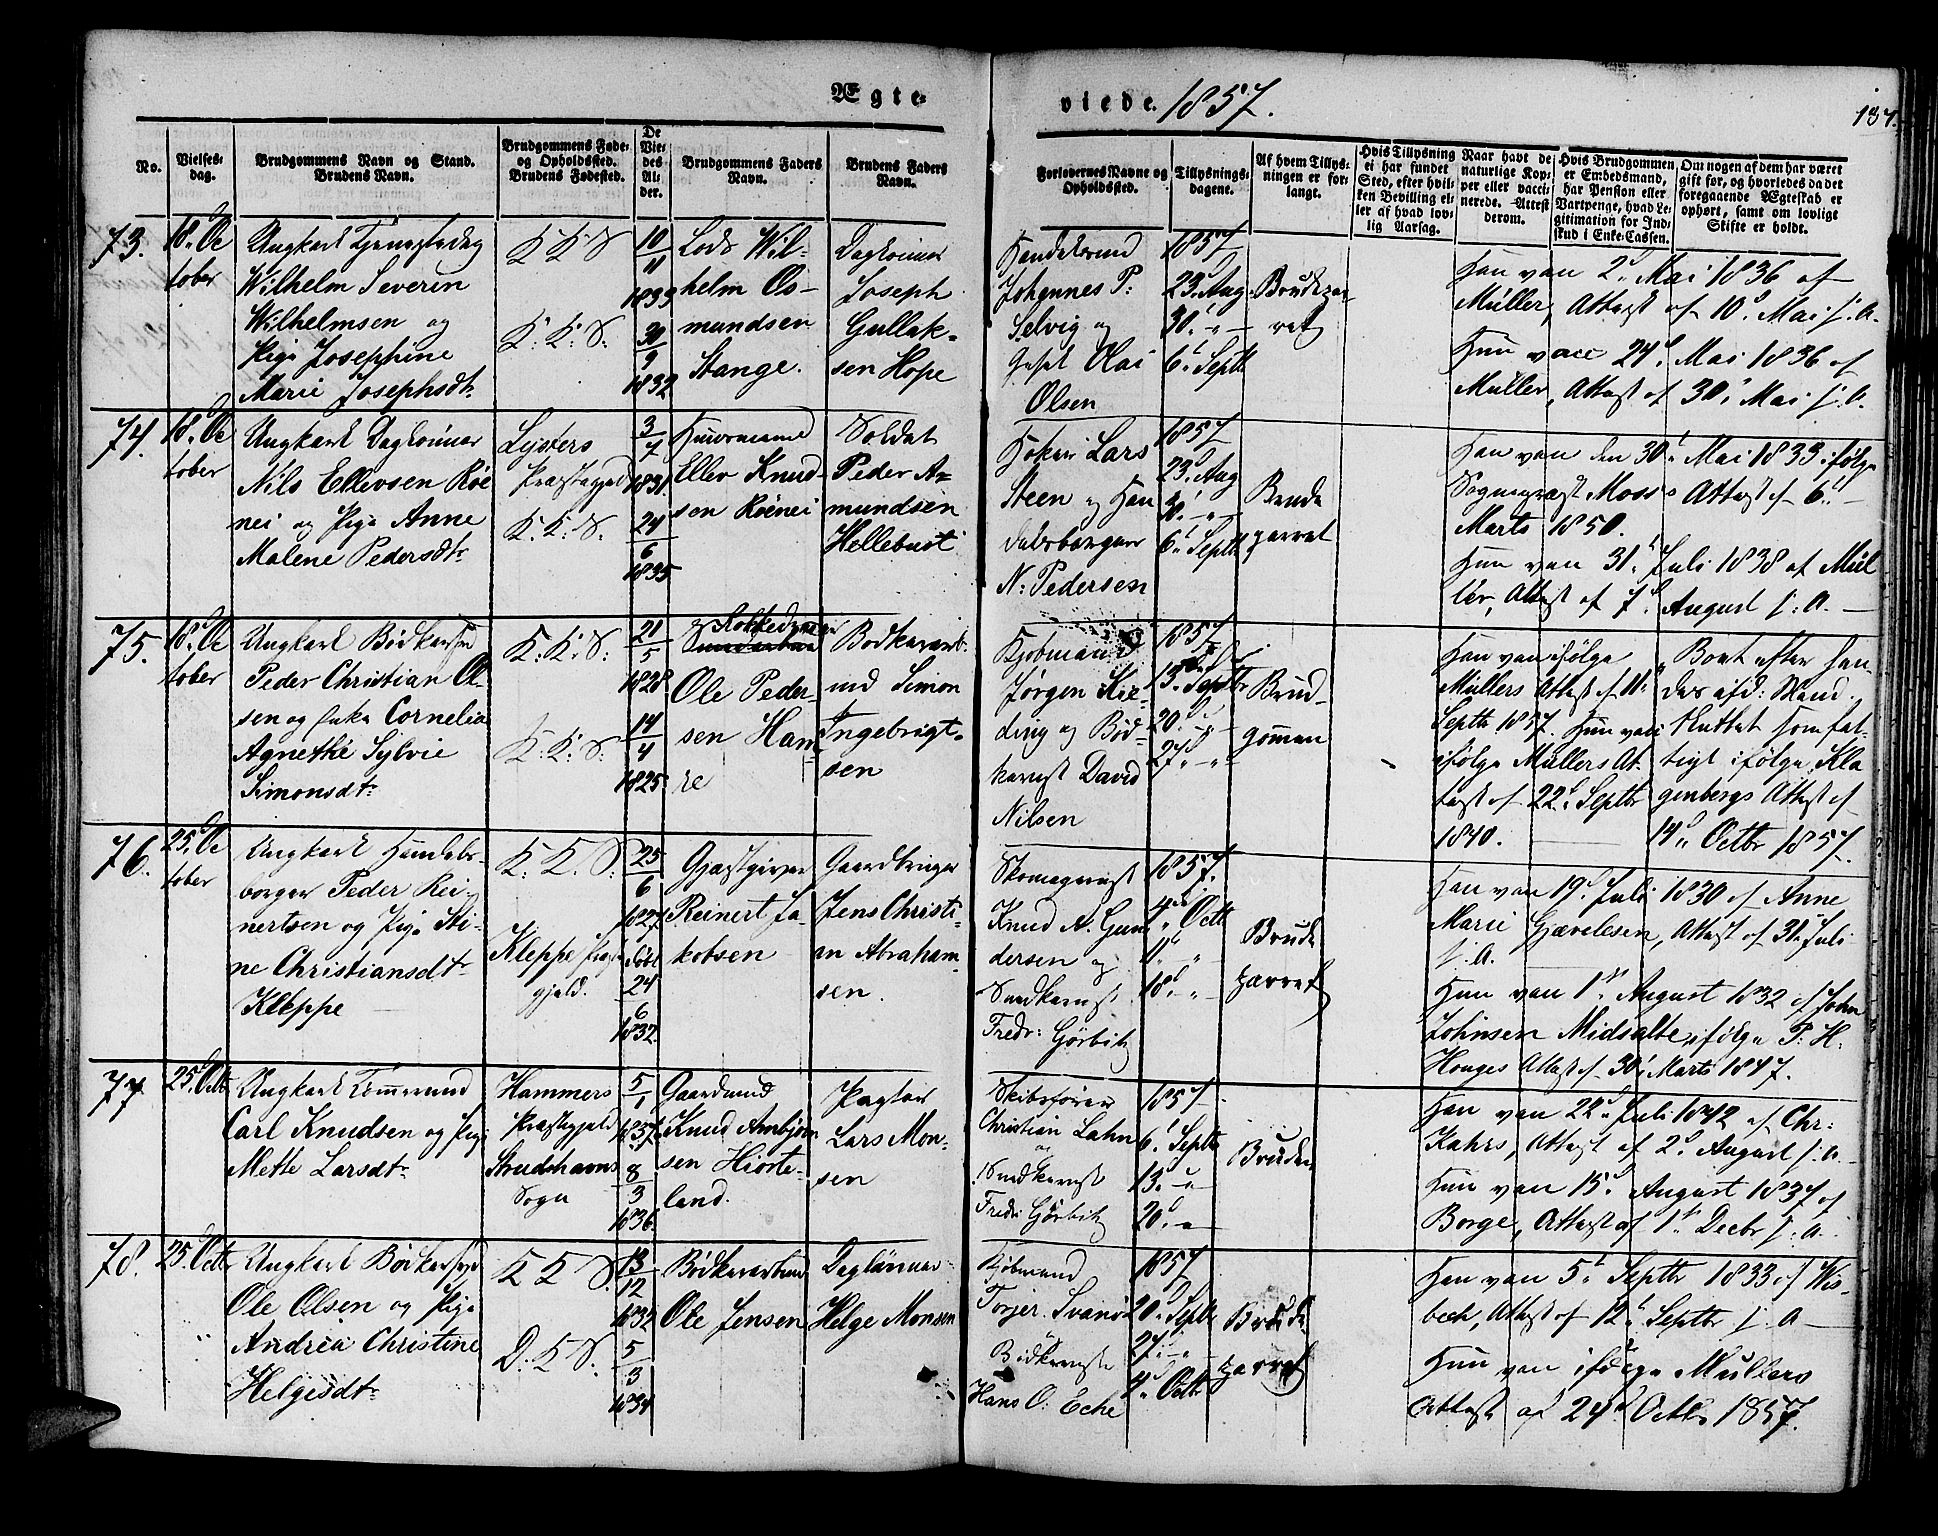 Ægte-
viede. 1857.
137.
No.
Vielses-
dag.
Brudgommens Navn og Stand.
Brudens Navn.
Brudgommens Føde-
og Opholdssted.
Brudens Fødested.
De
Vie-
des
Al-
der.
Brudgommens Faders
Navn.
Brudens Faders
Navn.
Forlovernes Navne og
Opholdssted.
Tillysnings-
dagene.
Af hvem Tillys-
ningen er for-
langt.
Hvis Tillysning
ei har fundet
Sted, efter hvil-
ken Bevilling el-
ler af hvad lov-
lig Aarsag.
Naar havt de
naturlige Kop-
per eller vacci-
nerede. Attest
derom.
Hvis Brudgommen
er Embedsmand,
har Pension eller
Vartpenge, hvad Le-
gitimation for Ind-
skud i Enke-Cassen.
Om nogen af dem har været
gift før, og hvorledes da det
foregaaende Ægteskab er
ophørt, samt om lovligt
Skifte er holdt.
73.
18. Oc
tober
Ungkarl
Wilhelm Severin
Wilhelmsen og
Pige Josephine
Marie Josephsdtr
K K S
K: K: S.
10
11
1833
30
9
1832
Lods Wil-
helm Os-
mundsen
Stange.
Dagleiner
Joseph
Gullak-
sen Hope
Handelsmd
Johannes P:
Selvig og
Olai
Olsen
1857
23. Aug.
30. " -
6. Septb
Brudepar-
ret
Han vac 2. Mai 1836 af
Müller, Attest af 10. Mai s. A.
Hun vacc 24. Mai 1836 af
Müller, Attest af 30. Mai s. A.
74.
18. Oc
tober
Ungkarl Dagleiner
Nils Ellevsen Röe
nei og Pige Anne
Malene Pedersdtr
Lysters
Præstegjeld
K: K: S.
3
7
1831.
24
6
1835
Huusmand
Ellev Knud
sen Röenei
Soldat
Peder A-
mundsen
Hellebust
Lars
Steen og Han
delsborger
N: Pedersen
1857
23. Aug
30. " -
6. Septb
Brude
parret
Han vac den 30. Mai 1833 ifølge
Sognepræst Moss's Attest af 6.
Marts 1850.
Hun vac 31. Juli 1838 af Mül
ler, Attest af 7. August s: a.
75.
18. Oc
tober
Ungkarl Bödkersvd
Peder Christian Ol-
sen og Enke Cornelia
Agnethe Sylvie
Simonsdtr
K: K: S:
K: K: S.
21
5
1828
14
4
1825
Ole Peder-
sen Han-
re
Bödkerarb.
md Simon
Ingebrigt-
sen
Kjöbmand
Jørgen
og Bød-
kermst David
Nilsen
1857
13. Septbr
20. " -
27. " "
Brud-
gommen
Han vac ifølge
Müllers Attest af 11.
Septb 1857. Hun vac
ifølge Müllers At-
test af 22. Septbr
1840.
Boet efter hen-
des afd: Mand
Sluttet som fat-
tigt ifølge Kla
genbergs Attest af
14. Octbr 1857.
76.
25. Oc
tober
Ungkarl Handels-
borger Peder Rei-
nertsen og Pige Sti-
ne Christiansdtr
Kleppe
K. K. S.
Kleppe Præste
gjeld.
25
6
1827
24
6
1832.
Gjæstgiver
Reinert Ja
kobsen
Gaardbruger
Jens Christi-
an Abraham-
sen.
Skomagermst
Knud A. Gun
dersen og
Snedkermst
Fredr: Görbitz
1857.
4. Octb
11. "
18. "
Brude
parret
Han vac 19. Juli 1830 af Anne
Marie Gjævelesen, Attest af 31. Juli
s. A.
Hun vac 1. August 1832 af John
Johnsen Midsalte, ifølge P: H.
Houges Attest af 30. Marts 1847.
77.
25. Octb
Ungkarl Tömmermd
Carl Knudsen og Pige
Mette Larsdtr
Hammers
Præstegjeld
Strudshavns
Sogn
5
1
1837
8
3
1836.
Gaardmand
Knud Ambjörn
sen Hiorte-
land.
Lars Mon-
sen
Skibsfører
Christian Lahn
og
Snedkermst
Fredr: Görbitz
1857
6. Septbr
13. "
20. "
Bruden
Han vac 22. Juli 1842 af Chr:
Kahrs, Attest af 2. August s. a.
Hun vac 15. August 1837 af
Borge, Attest af 1. Decbr s. a.
78.
25. Octb
Ungkarl Bödkersvd
Ole Olsen og Pige
Andrea Christine
Helgesdtr
K K S.
D: K S.
13
12
1832
5
3
1834
Bödkerarbmd
Ole Jensen
Daglönner
Helge Monsen
Kjøbmand
Torjer Svanö
Bödkermst
Hans O: Eche
1857
20. Septb
27. " -
4. Octb
Brude
parret
Han vac 5. Septbr 1833 af Wis-
bech, Attest af 12. Septbr s. a
Hun vac ifølge Müllers
Attest af 24. Octbr 1857.